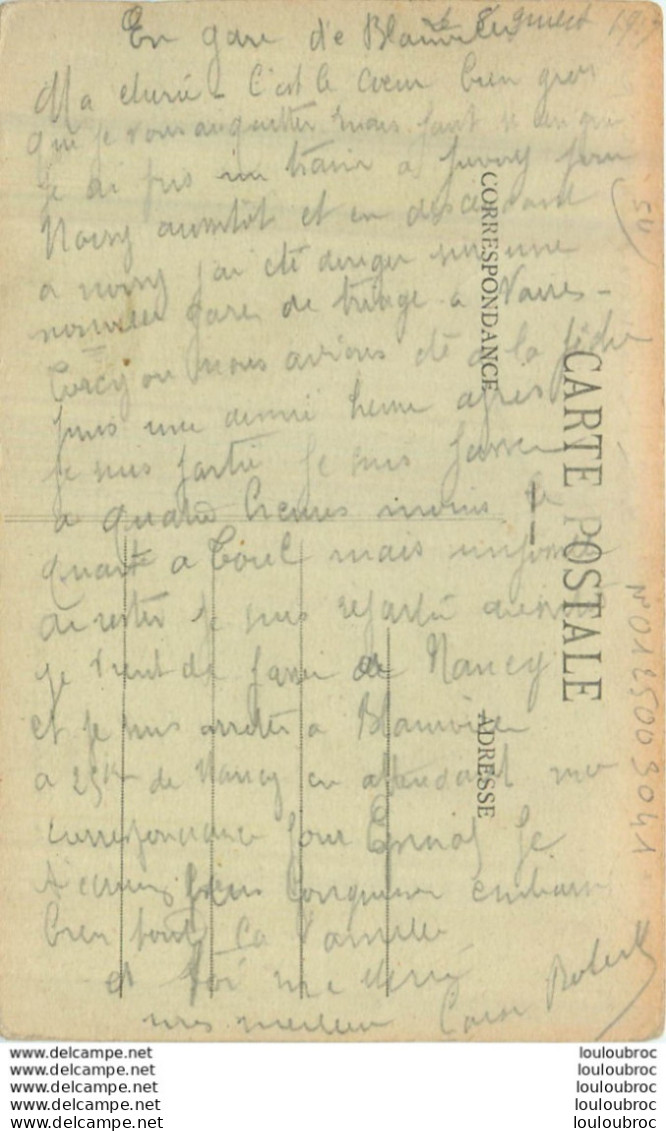 En gare de Blainville le 8 juillet 191
Ma chérie - C'est le cœur bien gros
que je vous ai quitter mais faut
je ai pris un train a Juvisy pour
Noisy aussitôt et en descendant
a noisy j'ai été diriger sur une
nouvelle gare de triage a Vaires-
Torcy ou nous avions été a la pêche
puis une demi heure après
je suis parti je suis passer
a quatre heures moins le
quart a Toul mais
de rester je suis repartie aussitôt
je vient de passer a Nancy
et je suis arrêter a Blainville
a 25km de Nancy en attendant ma
correspondance pour Epinal je
bien
bien tout la famille
et toi ma chérie
mes meilleur Robert
CORRESPONDANCE
CARTE POSTALE
ADRESSE
N° 0125009041
www.delcampe.net louloubroc
www.delcampe.net louloubroc
www.delcampe.net louloubroc
www.delcampe.net louloubroc
www.delcampe.net louloubroc